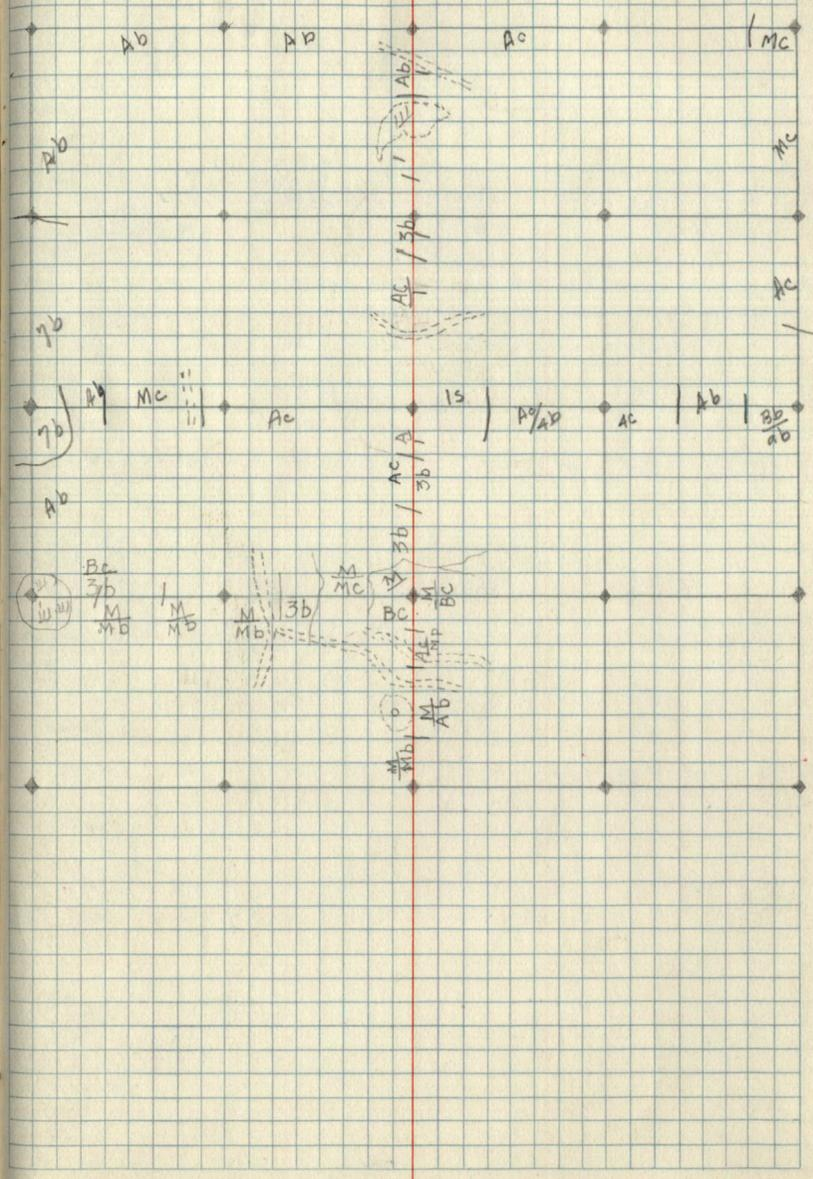 Ab Ab Ac / Mc
Ab
Ab Mc
/ 3b
Ac
1
Ac
7b
Ab Mc Ac 1s Ac/Ab Ac Ab 3b/ab
7b
A
Ac / 3b
Ab
/
3b
Bc
3/b
M/Mb / M/Mb M/Mb 3b M/Mc M BC M/BC
Ac/Mb
M/Ab
M/Mb